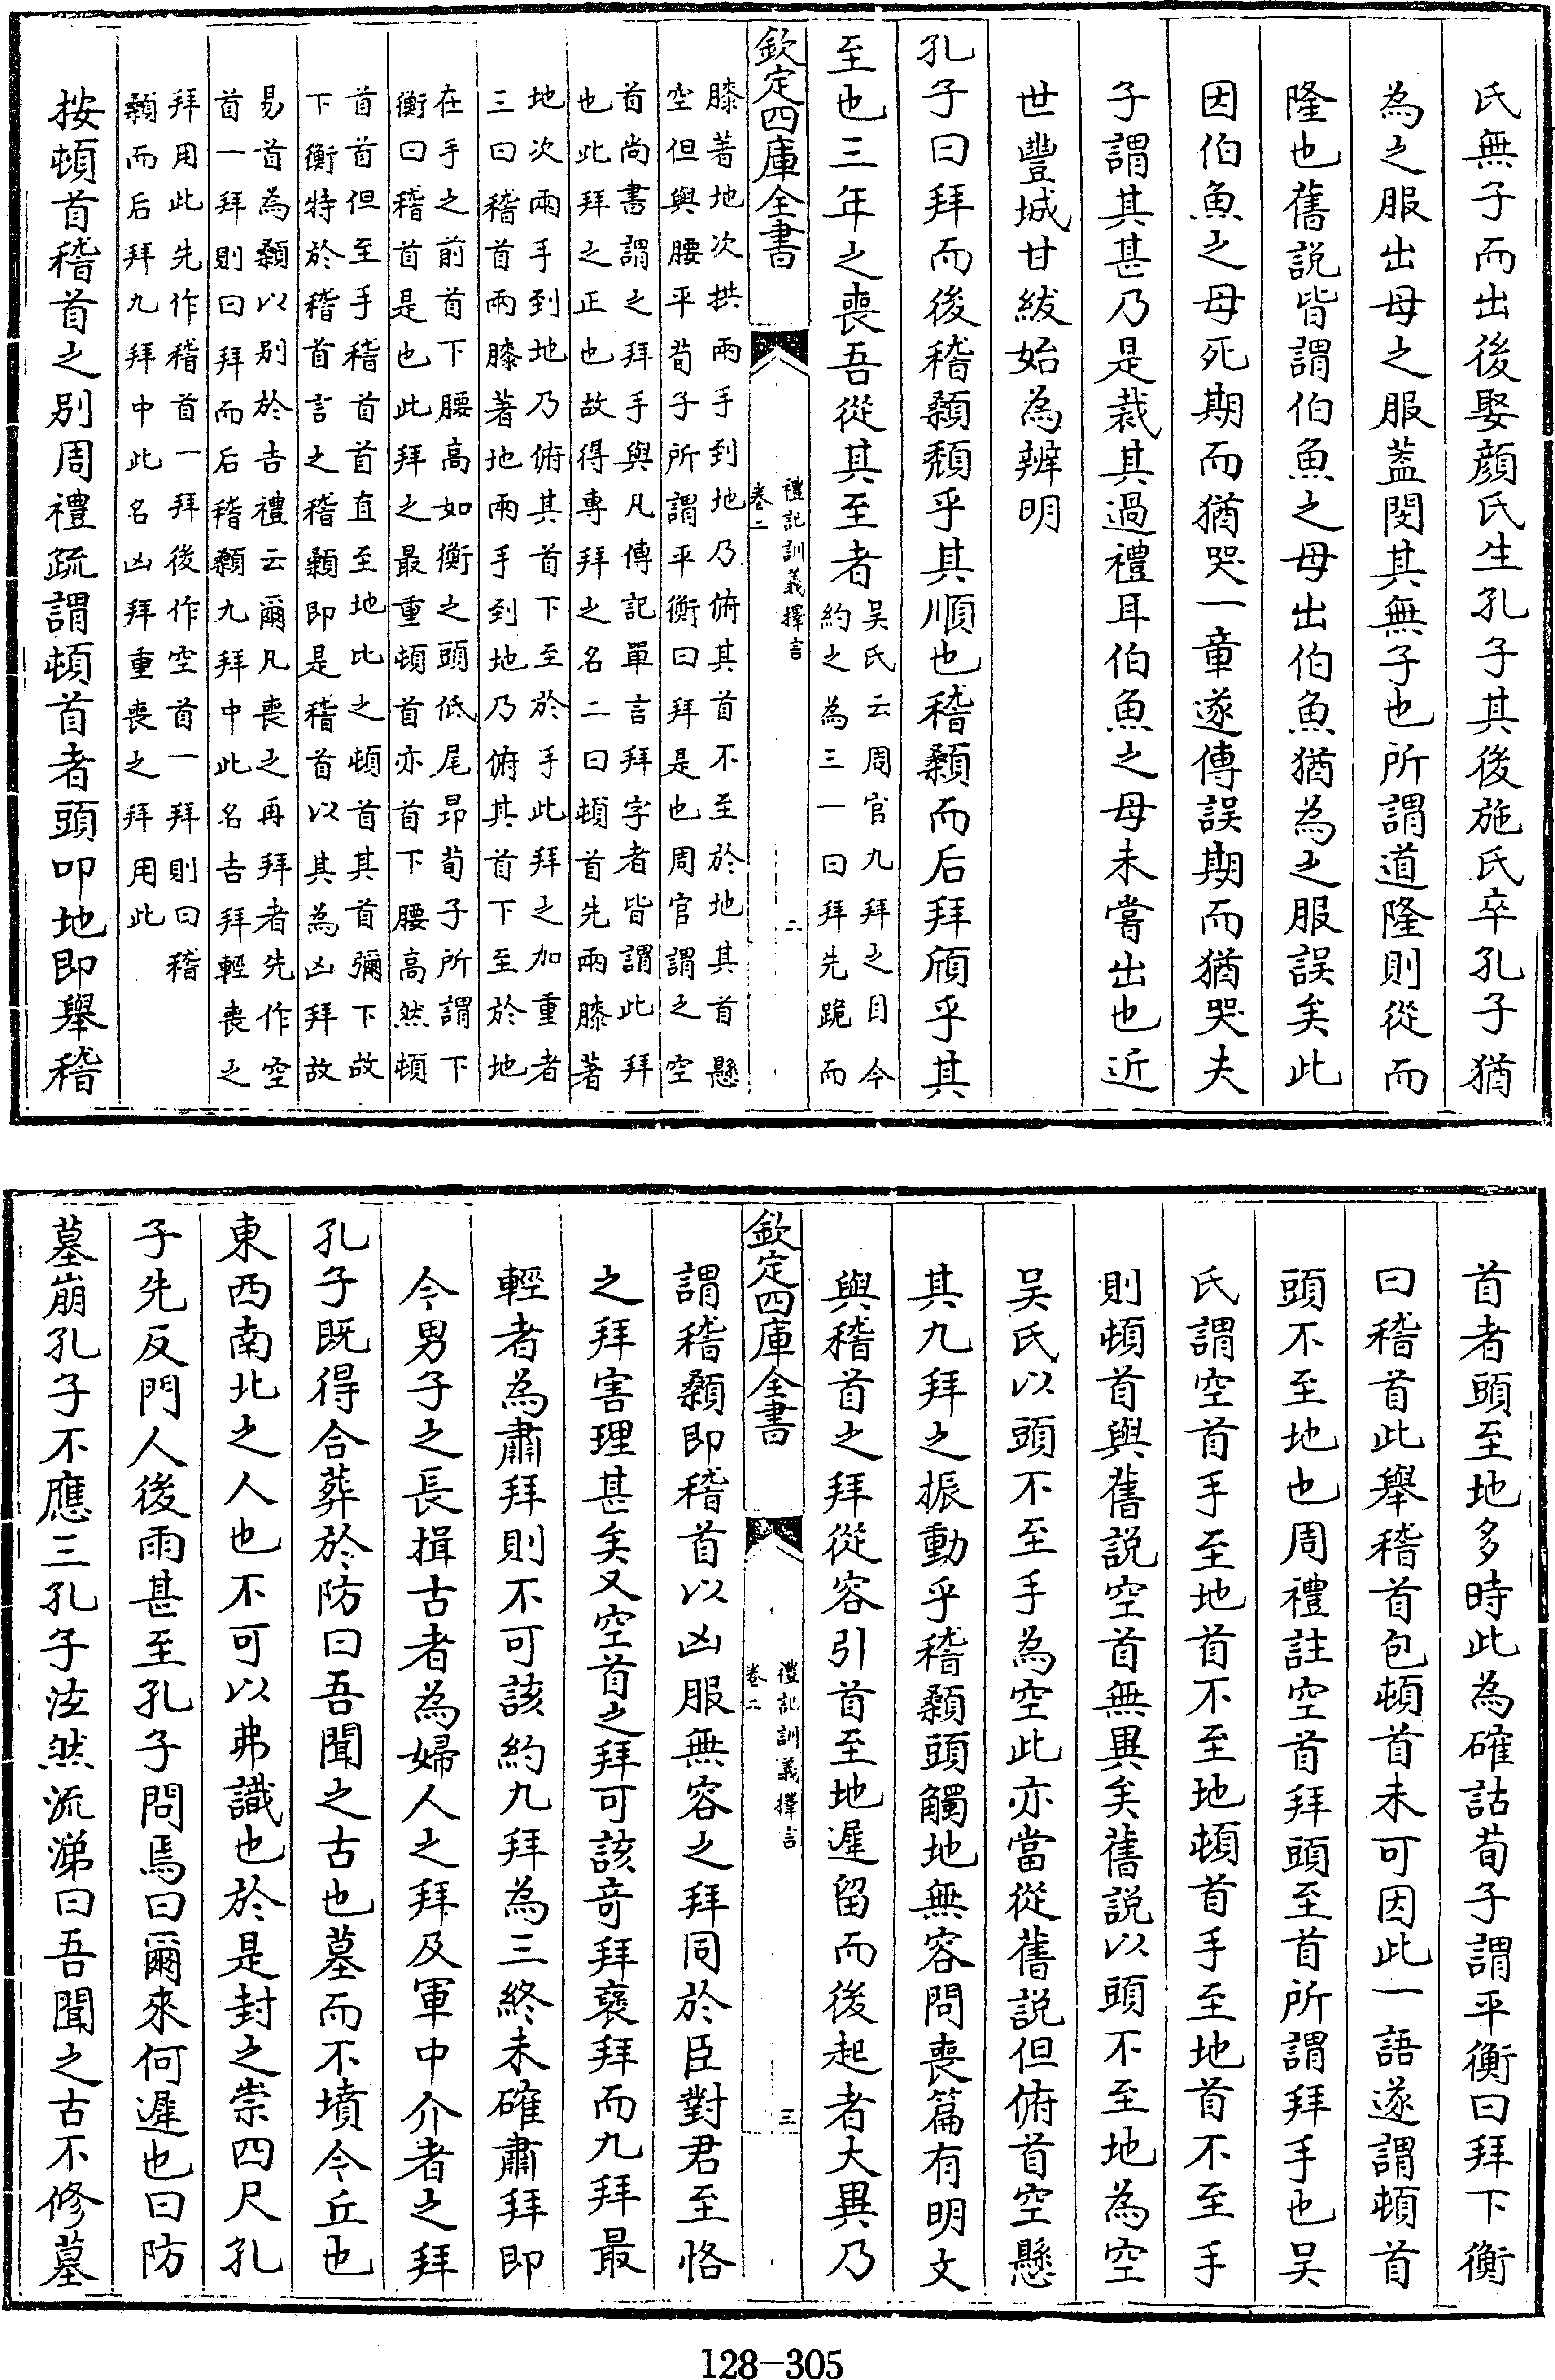 氏無子而出後娶顔氏生孔子其後施氏卒孔子猶
為之服出母之服葢閔其無子也所謂道隆則從而
隆也舊説皆謂伯魚之母出伯魚猶為之服誤矣此
因伯魚之母死期而猶哭一章遂傳誤期而猶哭夫
子謂其甚乃是裁其過禮耳伯魚之母未嘗出也近
世豐城甘紱始為辨明
孔子曰拜而後稽顙頽乎其順也稽顙而后拜頎乎其
至也三年之喪吾從其至者吴氏云周官九拜之目今
約之為三一曰拜先跪而
欽定四庫全書
禮記訓義擇言
卷二
二
膝著地次拱兩手到地乃俯其首不至於地其首懸
空但與腰平荀子所謂平衡曰拜是也周官謂之空
首尚書謂之拜手與凡傳記單言拜字者皆謂此拜
也此拜之正也故得專拜之名二曰頓首先兩膝著
地次兩手到地乃俯其首下至於手此拜之加重者
三曰稽首兩膝著地兩手到地乃俯其首下至於地
在手之前首下腰高如衡之頭低尾昂荀子所謂下
衡曰稽首是也此拜之最重頓首亦首下腰高然頓
首首但至手稽首首直至地比之頓首其首彌下故
下衡特於稽首言之稽顙即是稽首以其為凶拜故
易首為顙以别於吉禮云爾凡喪之再拜者先作空
首一拜則曰拜而后稽顙九拜中此名吉拜輕喪之
拜用此先作稽首一拜後作空首一拜則曰稽
顙而后拜九拜中此名凶拜重喪之拜用此
按頓首稽首之别周禮疏謂頓首者頭叩地即舉稽
首者頭至地多時此為確詁荀子謂平衡曰拜下衡
曰稽首此舉稽首包頓首未可因此一語遂謂頓首
頭不至地也周禮註空首拜頭至首所謂拜手也吴
氏謂空首手至地首不至地頓首手至地首不至手
則頓首與舊説空首無異矣舊説以頭不至地為空
吴氏以頭不至手為空此亦當從舊説但俯首空懸
其九拜之振動乎稽顙頭觸地無容問喪篇有明文
與稽首之拜從容引首至地遲留而後起者大異乃
欽定四庫全書
禮記訓義擇言
卷二
三
謂稽顙即稽首以凶服無容之拜同於臣對君至恪
之拜害理甚矣又空首之拜可該竒拜褒拜而九拜最
輕者為肅拜則不可該約九拜為三終未確肅拜即
今男子之長揖古者為婦人之拜及軍中介者之拜
孔子既得合葬於防曰吾聞之古也墓而不墳今丘也
東西南北之人也不可以弗識也於是封之崇四尺孔
子先反門人後雨甚至孔子問焉曰爾來何遲也曰防
墓崩孔子不應三孔子泫然流涕曰吾聞之古不修墓
128-305